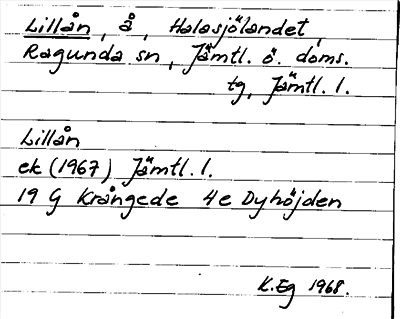 Lillån, å, Halasjölandet,
Ragunda sn, Jämtl. ö. doms.
tg, Jämtl. l.
Lillån
ek (1967) Jämtl. l.
19 G Krångede 4e Dyhöjden
K.Eg 1968.